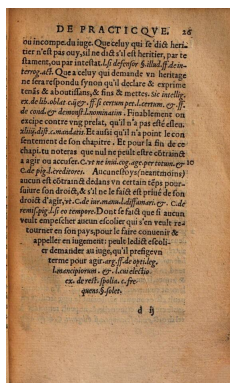 DE PRACTICQVE. 26
ou incompe.du iuge. Que celuy qui se dict heri-
tier n'est pas ouy, s'il ne dict s'il est heritier, par te
stament, ou par intestat. l. si defensor §. illud. ff. de in-
terrog. act. Que a celuy qui demande vn heritage
ne sera respondu synon qu'il declare & exprime
tenás & aboutissans, & fins & mettes.
ex. de lib. oblat
de cond. & demonst. l. nominatim. Finablement on
excipe contre vng prelat, qu'il n'a pas esté esleu.
Et aussi qu'il n'a point le con
sentement de son chapitre. Et pour la fin de ce
chapi. tu noteras que nul ne peult estre côtrainct
a agir ou accuser. C. vt ne inui. cog. age. per totum, & 10
C. de pig. l. creditores. Aucunesfoys (neantmoins)
aucun est côtrainct dedans vn certain téps pour-
suiuire son droict, & s'il ne le faict est priué de son
droict d'agir, vt. C. de iur. mann. l. diffamari. & C. de
remis. pig. l. si eo tempore. Dont se faict que si aucun
veult empescher aucun escolier qui s'en veult re
tourner en son pays, pour le faire conuenir &
appeller en iugement: peult ledict escoli-
er demander au iuge, qu'il presigevn
terme pour agir. arg. ff. de opti. leg.
l. mancipiorum . & l. cui electio
ex. de rest. spolia. c. fre-
quens. §. solet.
d ij